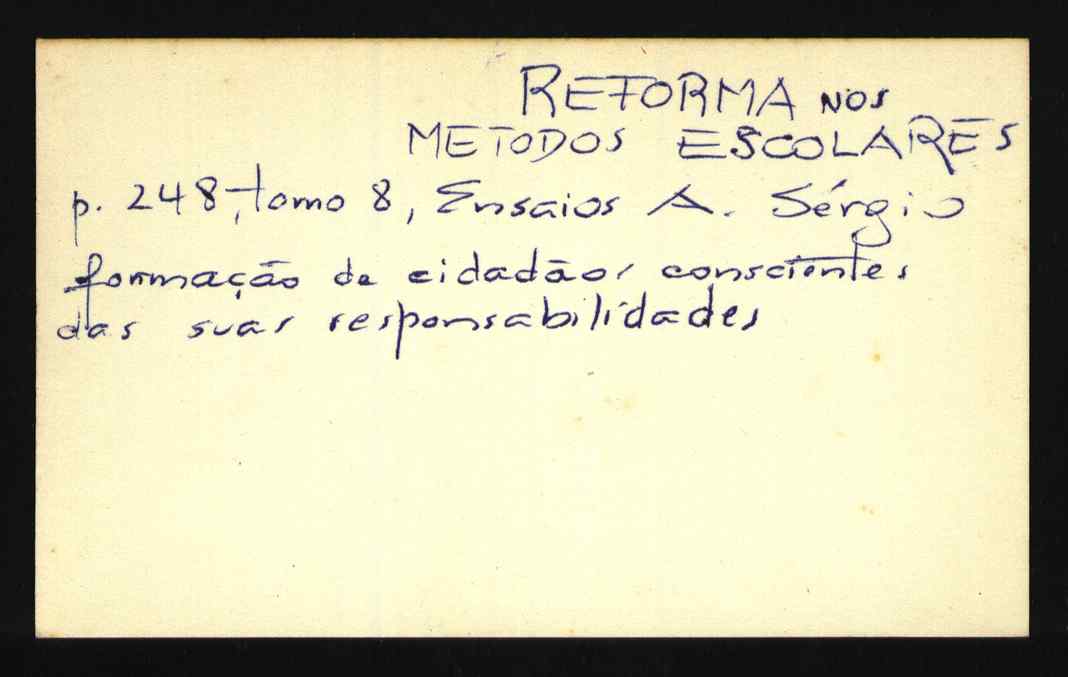 REFORMA NOS
METODOS ESCOLARES
p. 248, tomo 8, Ensaios A. Sérgio
formação de cidadãos conscientes
das suas responsabilidades